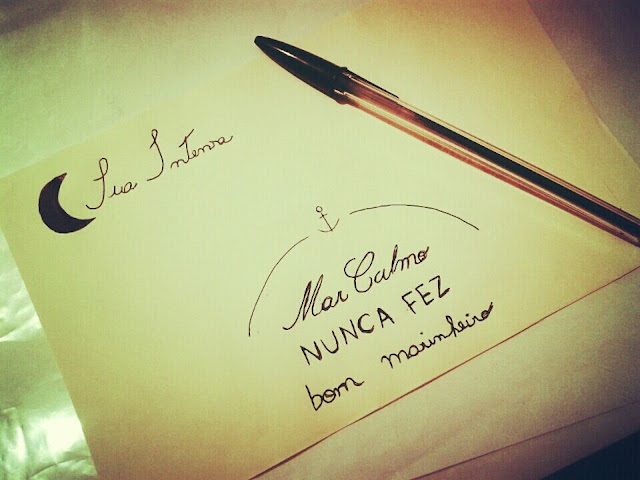 Sua Intensa
Mar Calmo
NUNCA FEZ
bom marinheiro